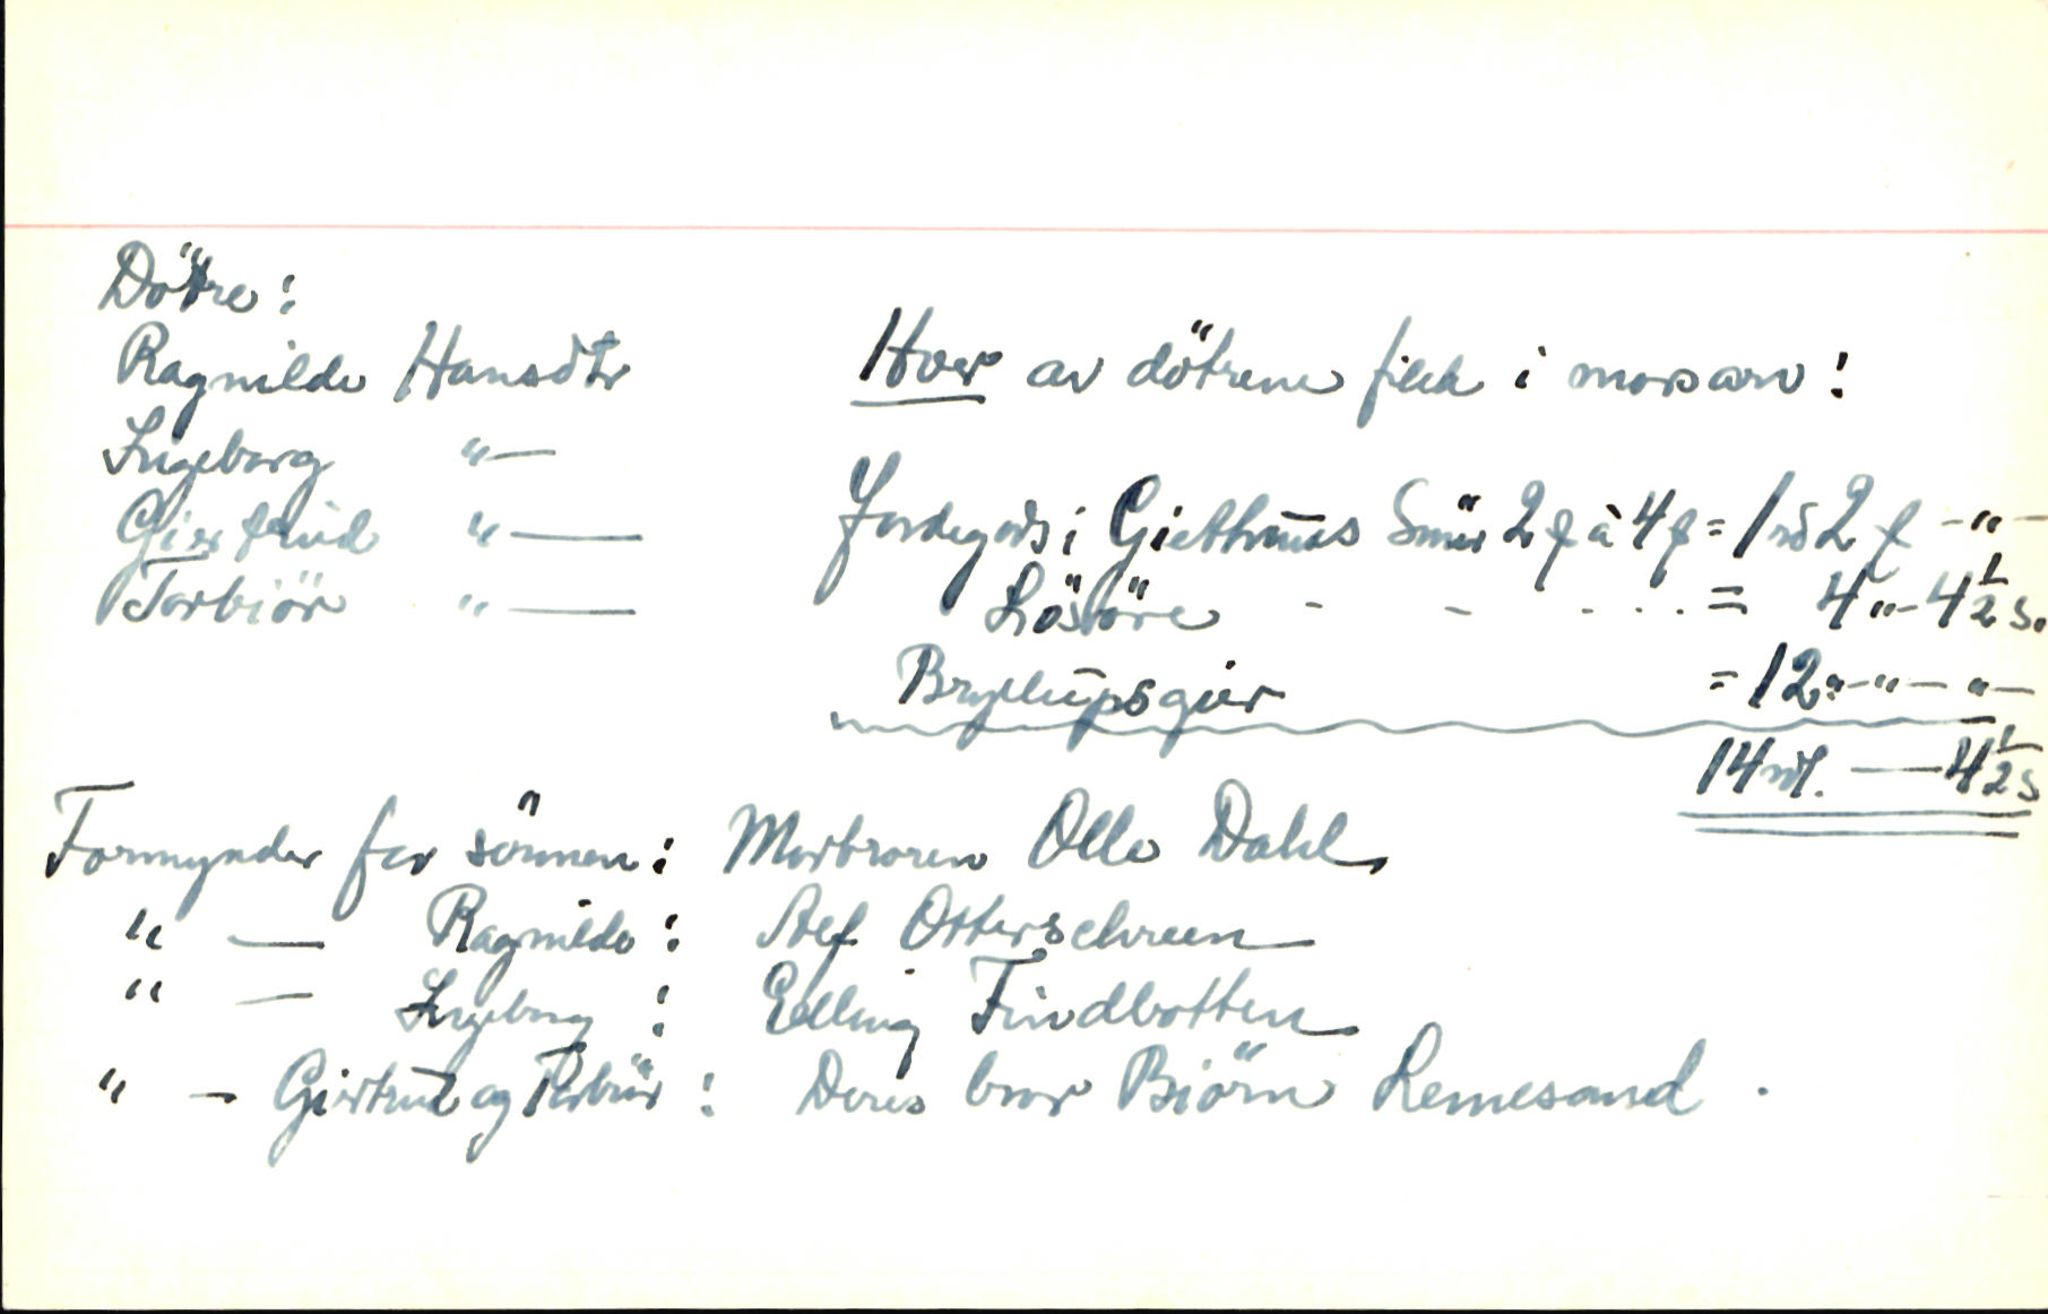 Dötre:
Ragnilde Hansdtr
Ingeborg "—
Giertrud "—
Torbiör "—
Hver av dötrene fikk i morsarv:
Jordegods i Gietthuus Smör 2 f à 4 f = 1 rd 2 f -"-
Lösöre - - . . . = 4 "- 4 1/2 s.
Bryllupsgier = 12 "-"-"-
14 rdl. — 4 1/2 s
Formynder for sönnen: Morbroren Olle Dahl,
" — Ragnilde: Alf Otterschreen
" — Ingeborg: Elling Findbotten
" — Giertrud og Torbiör: Deres bror Biörn Lemesand.